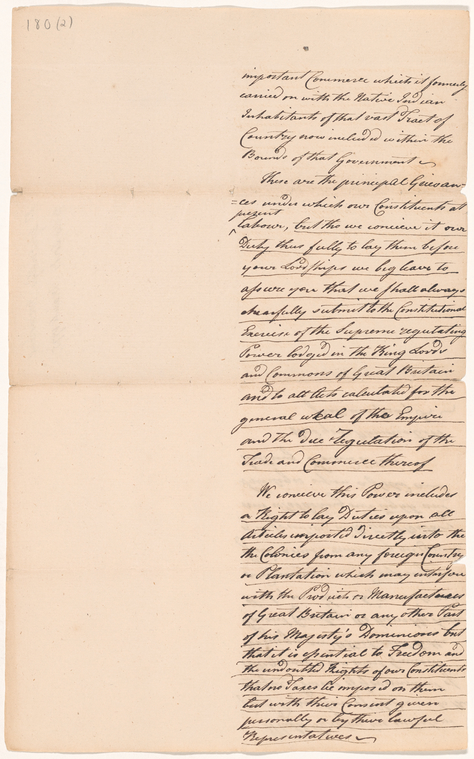 180(2)
important Commerce which it formerly
carried on with the Native Indian
Inhabitants of that vast Tract of
Country now included within the
Bounds of that Government
These are the principal Grievan
=ces under which our Constituents at
present
labour, but tho we concieve it our
Duty thus fully to lay them before
your Lordships we beg leave to
assure you that we shall always
chearfully submit to the Constitutional
Exercise of the Supreme regulating
Power lodged in the King Lords
and Commons of Great Britain
and to all Acts calculated for the
general weal of the Empire
and the due regulation of the
Trade and Commerce thereof
We concieve this Power includes
a Right to lay Duties upon all
Articles imported directly into the
the Colonies from any foreign Country
or Plantation which may interfere
with the Products or Manufactures
of Great Britain or any other Part
of his Majesty's Dominions but
that it is essential to Freedom and
the undoubted Rights of our Constituents
that no Taxes be imposed on them
but with their Consent given
personally or by their lawful
Representatives